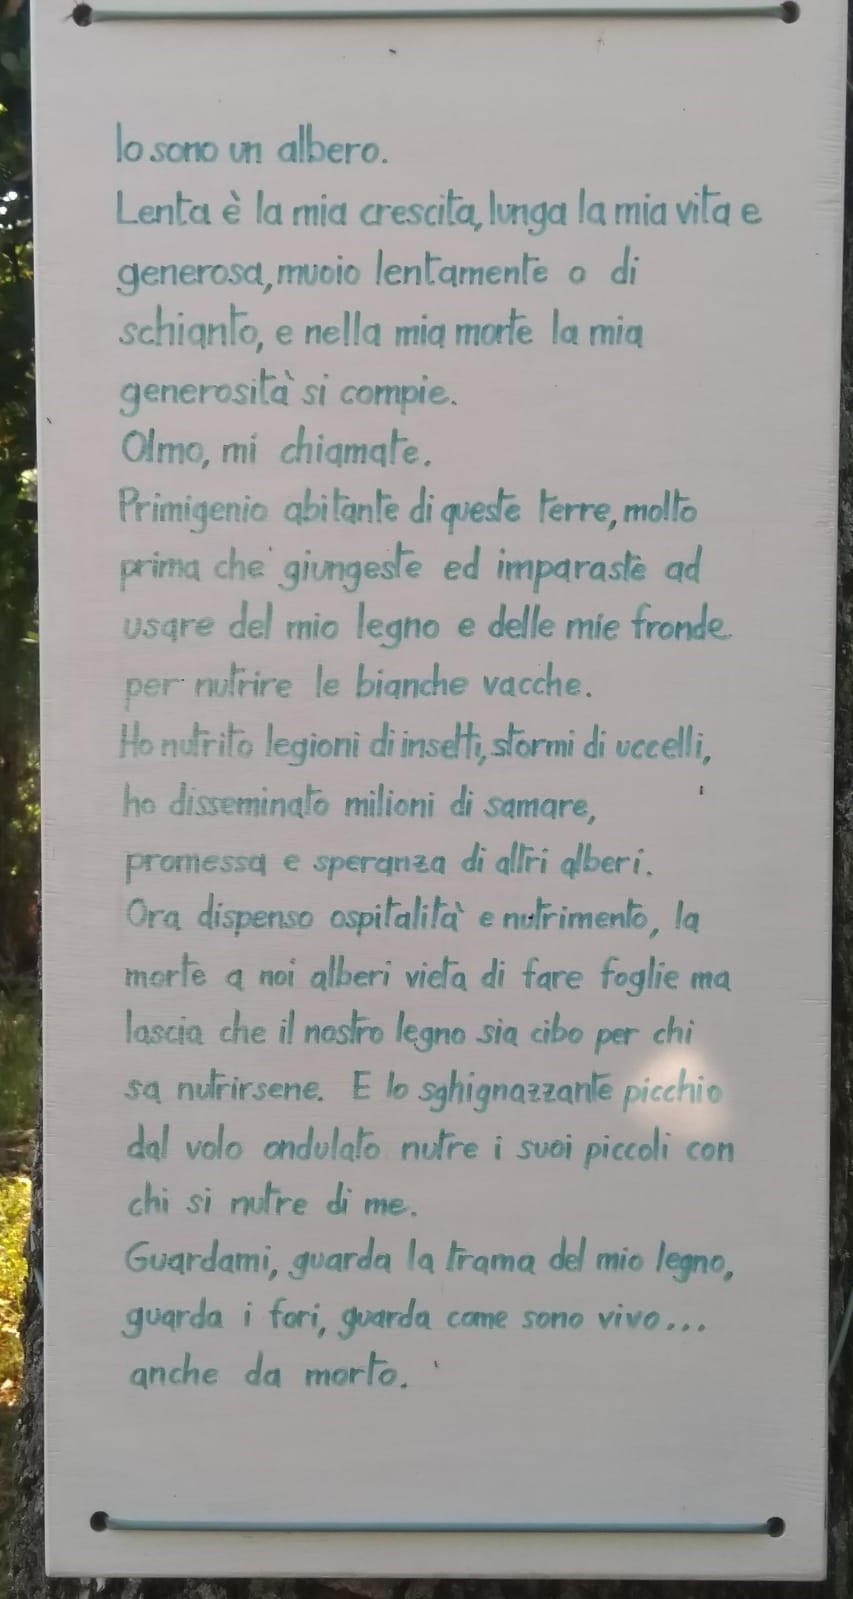 Io sono un albero.
Lenta è la mia crescita, lunga la mia vita e
generosa, muoio lentamente o di
schianto, e nella mia morte la mia
generosità si compie.
Olmo, mi chiamate.
Primigenio abitante di queste terre, molto
prima che giungeste ed imparaste ad
usare del mio legno e delle mie fronde
per nutrire le bianche vacche.
Ho nutrito legioni di insetti, stormi di uccelli,
ho disseminato milioni di samare,
promessa e speranza di altri alberi.
Ora dispenso ospitalità e nutrimento, la
morte a noi alberi vieta di fare foglie ma
lascia che il nostro legno sia cibo per chi
sa nutrirsene. E lo sghignazzante picchio
dal volo ondulato nutre i suoi piccoli con
chi si nutre di me.
Guardami, guarda la trama del mio legno,
guarda i fori, guarda come sono vivo...
anche da morto.